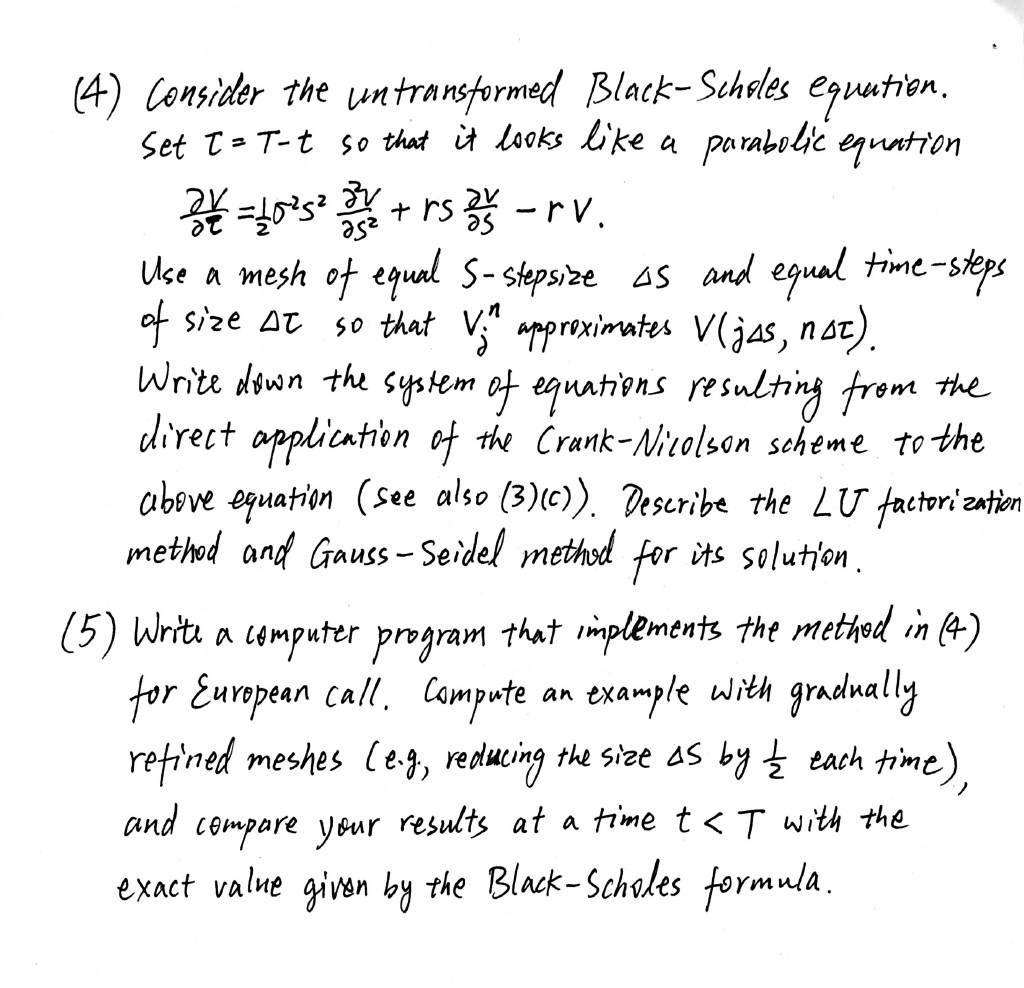 (4) Consider the untransformed Black-Scholes equation.
Set τ = T-t so that it looks like a parabolic equation
∂V/∂τ = 1/2 σ²s² ∂²V/∂s² + rs ∂V/∂S - rV.
Use a mesh of equal S-stepsize ΔS and equal time-steps
of size Δτ so that Vⱼⁿ approximates V(jΔs, nΔτ).
Write down the system of equations resulting from the
direct application of the Crank-Nicolson scheme to the
above equation (see also (3)(c)). Describe the LU factorization
method and Gauss-Seidel method for its solution.
(5) Write a computer program that implements the method in (4)
for European call. Compute an example with gradually
refined meshes (e.g., reducing the size ΔS by 1/2 each time),
and compare your results at a time t < T with the
exact value given by the Black-Scholes formula.